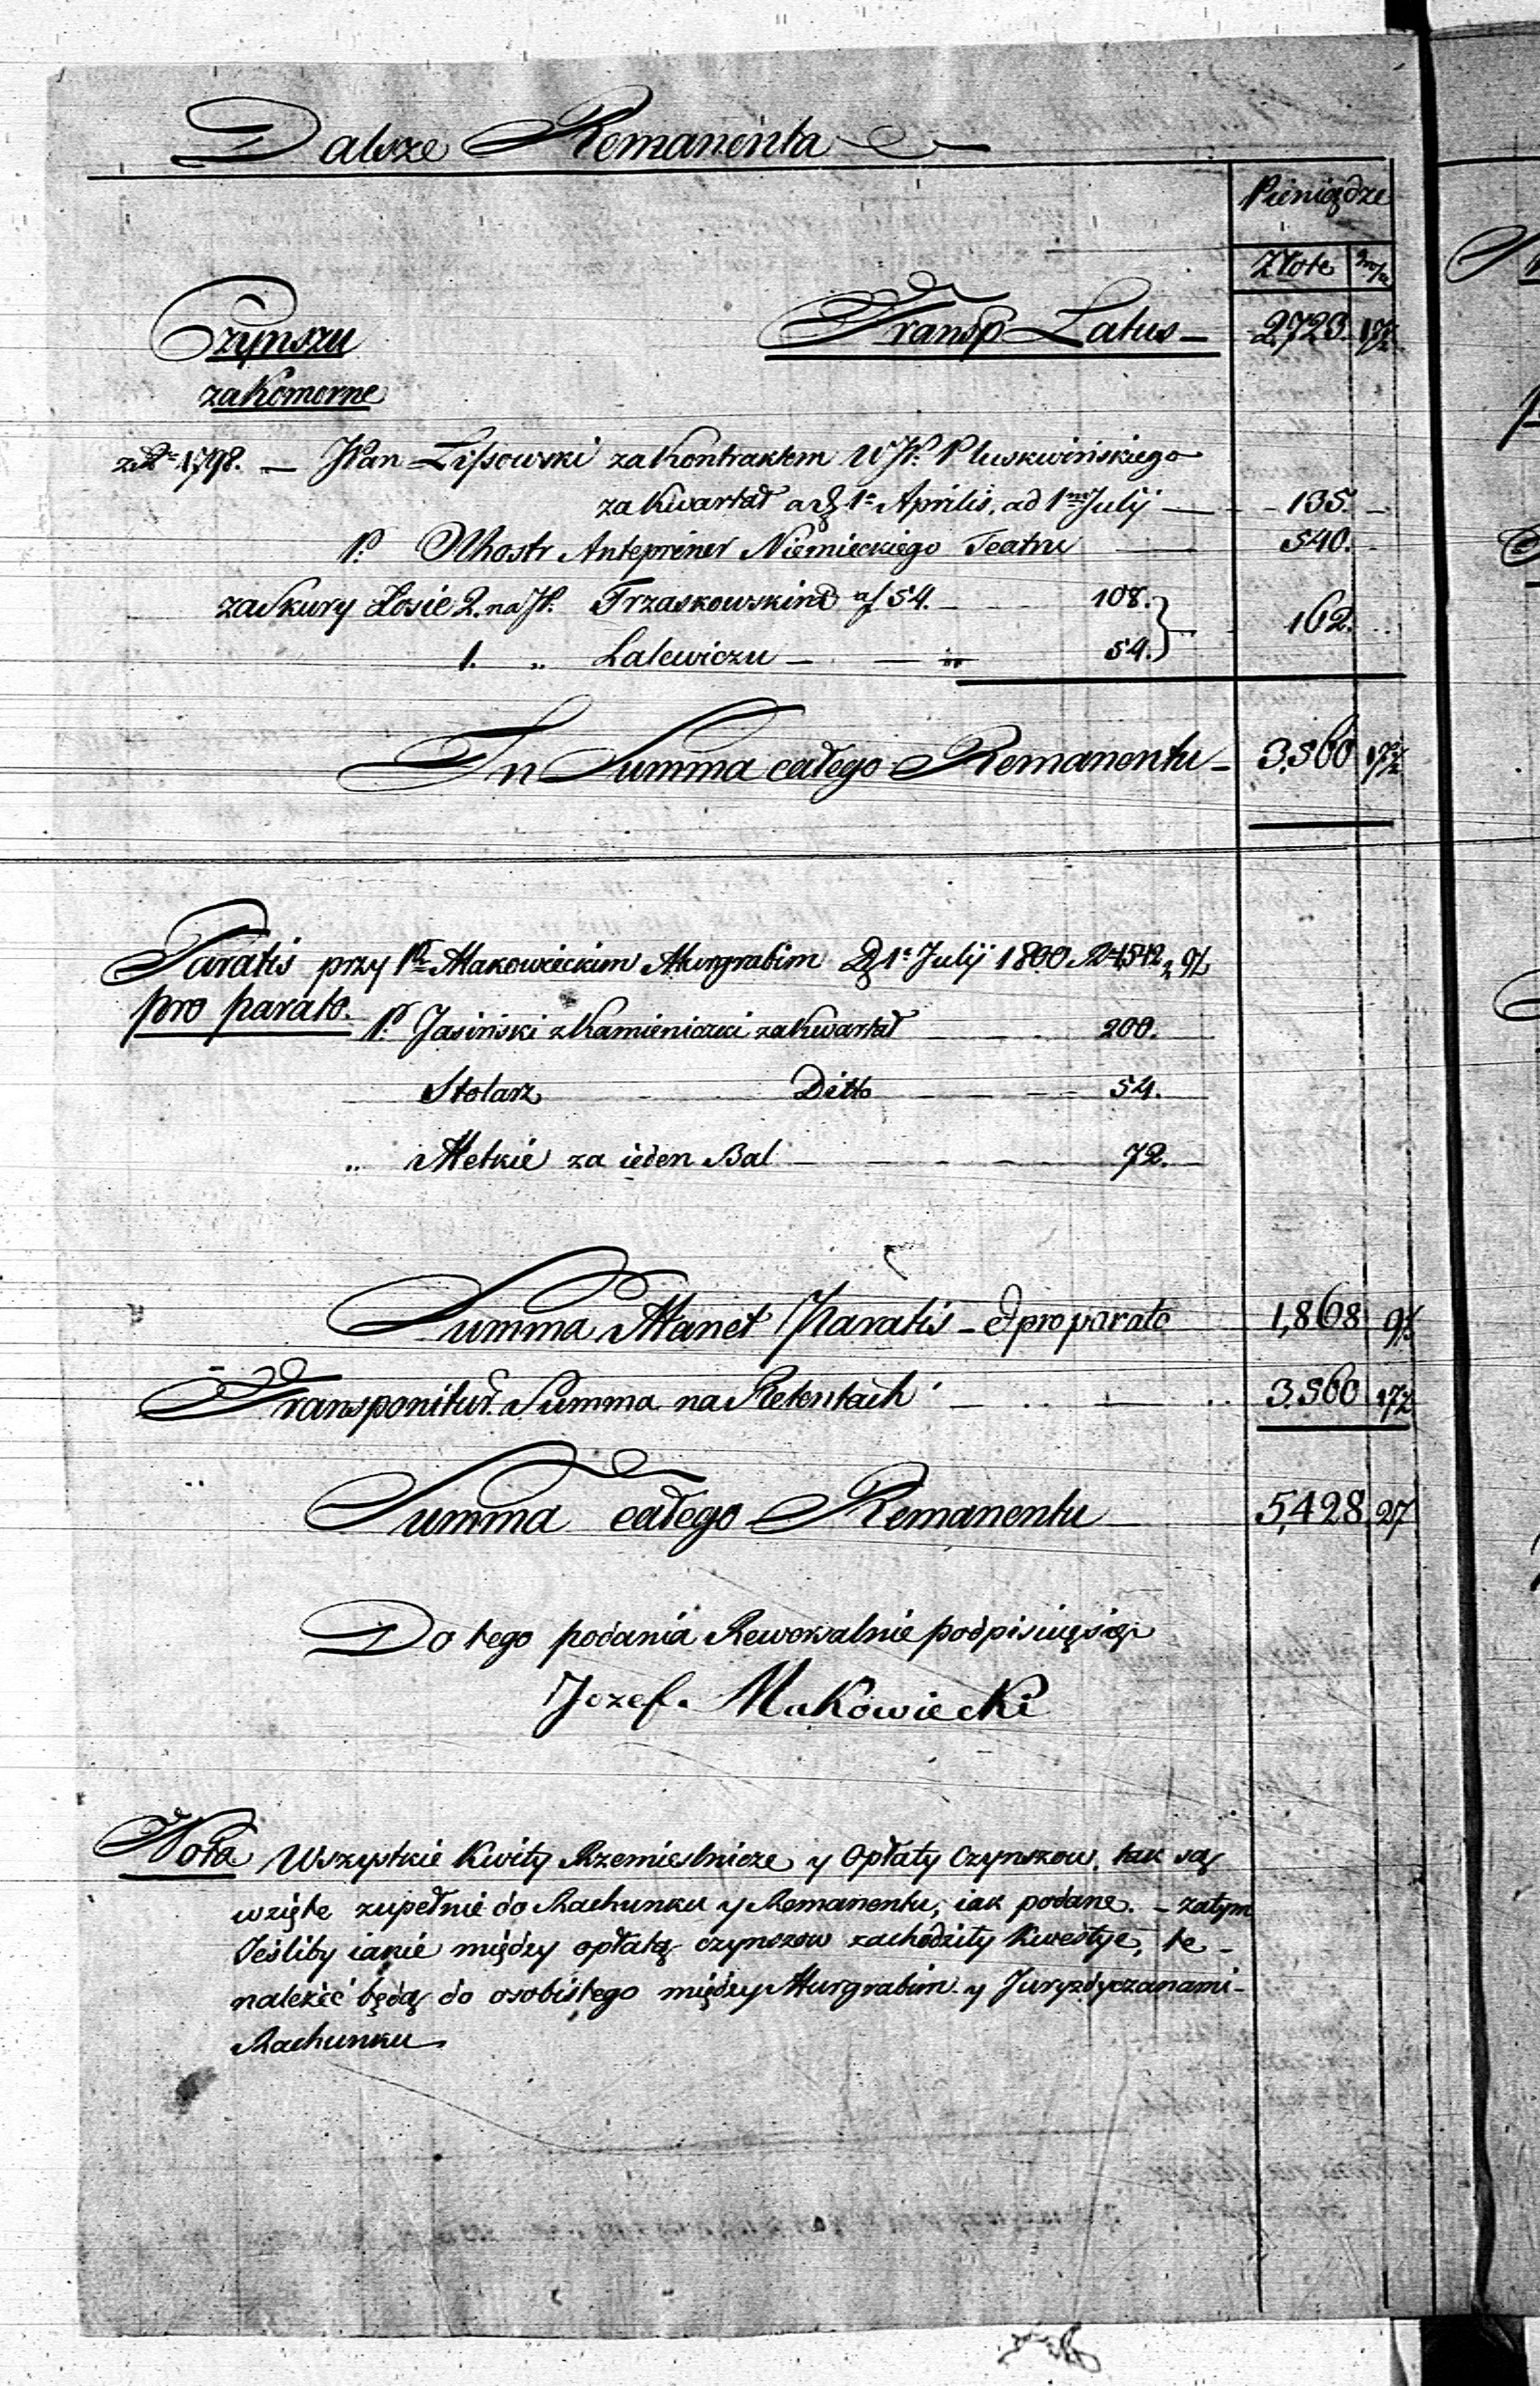 Dalsze Remanenta
Pieniądze
Złote
Czynszu
Transp Latus 2,723. 17½
za Komorne
1798. — JPan Lissowski za Kontraktem WJP. Pluskwińskiego
za Kwartał a 1a Aprilis, ad 1mam Julij — 135.
P. Antreprener Niemieckiego Teatru — 540.
za Skury Łosie 2. na JP. Trzaskowskim a f 54. 108.
162.
1. „ Lalewiczu — „ 54.
In Summa całego Remanentu 3.560 17½
Paratis przy Makowieckim Murgrabim 1a Julij 1800 1542 „ 9½
pro parato. P. Jasiński z Kamieniczki za Kwartał 200.
Stolarz Ditto 54.
„ Metkie za ieden Bal 72.
Summa Manet Paratis et pro parato 1,868 9½
Transponitur Summa na Retentach 3.560 17½
Summa całego Remanentu 5,428 27
Do tego podania Rewokalnie podpisuię się
Jozef Makowiecki
Nota Wszystkie Kwity Rzemieslnicze y Opłaty Czynszow, tak są
wzięte zupełnie do Rachunku y Remanentu, iak podane. – zatym
Jeśliby iakie między opłatą czynszow zachodziły Kwestye, te
należeć będą do osobistego między Murgrabim y Juryzdyczanami
Rachunku